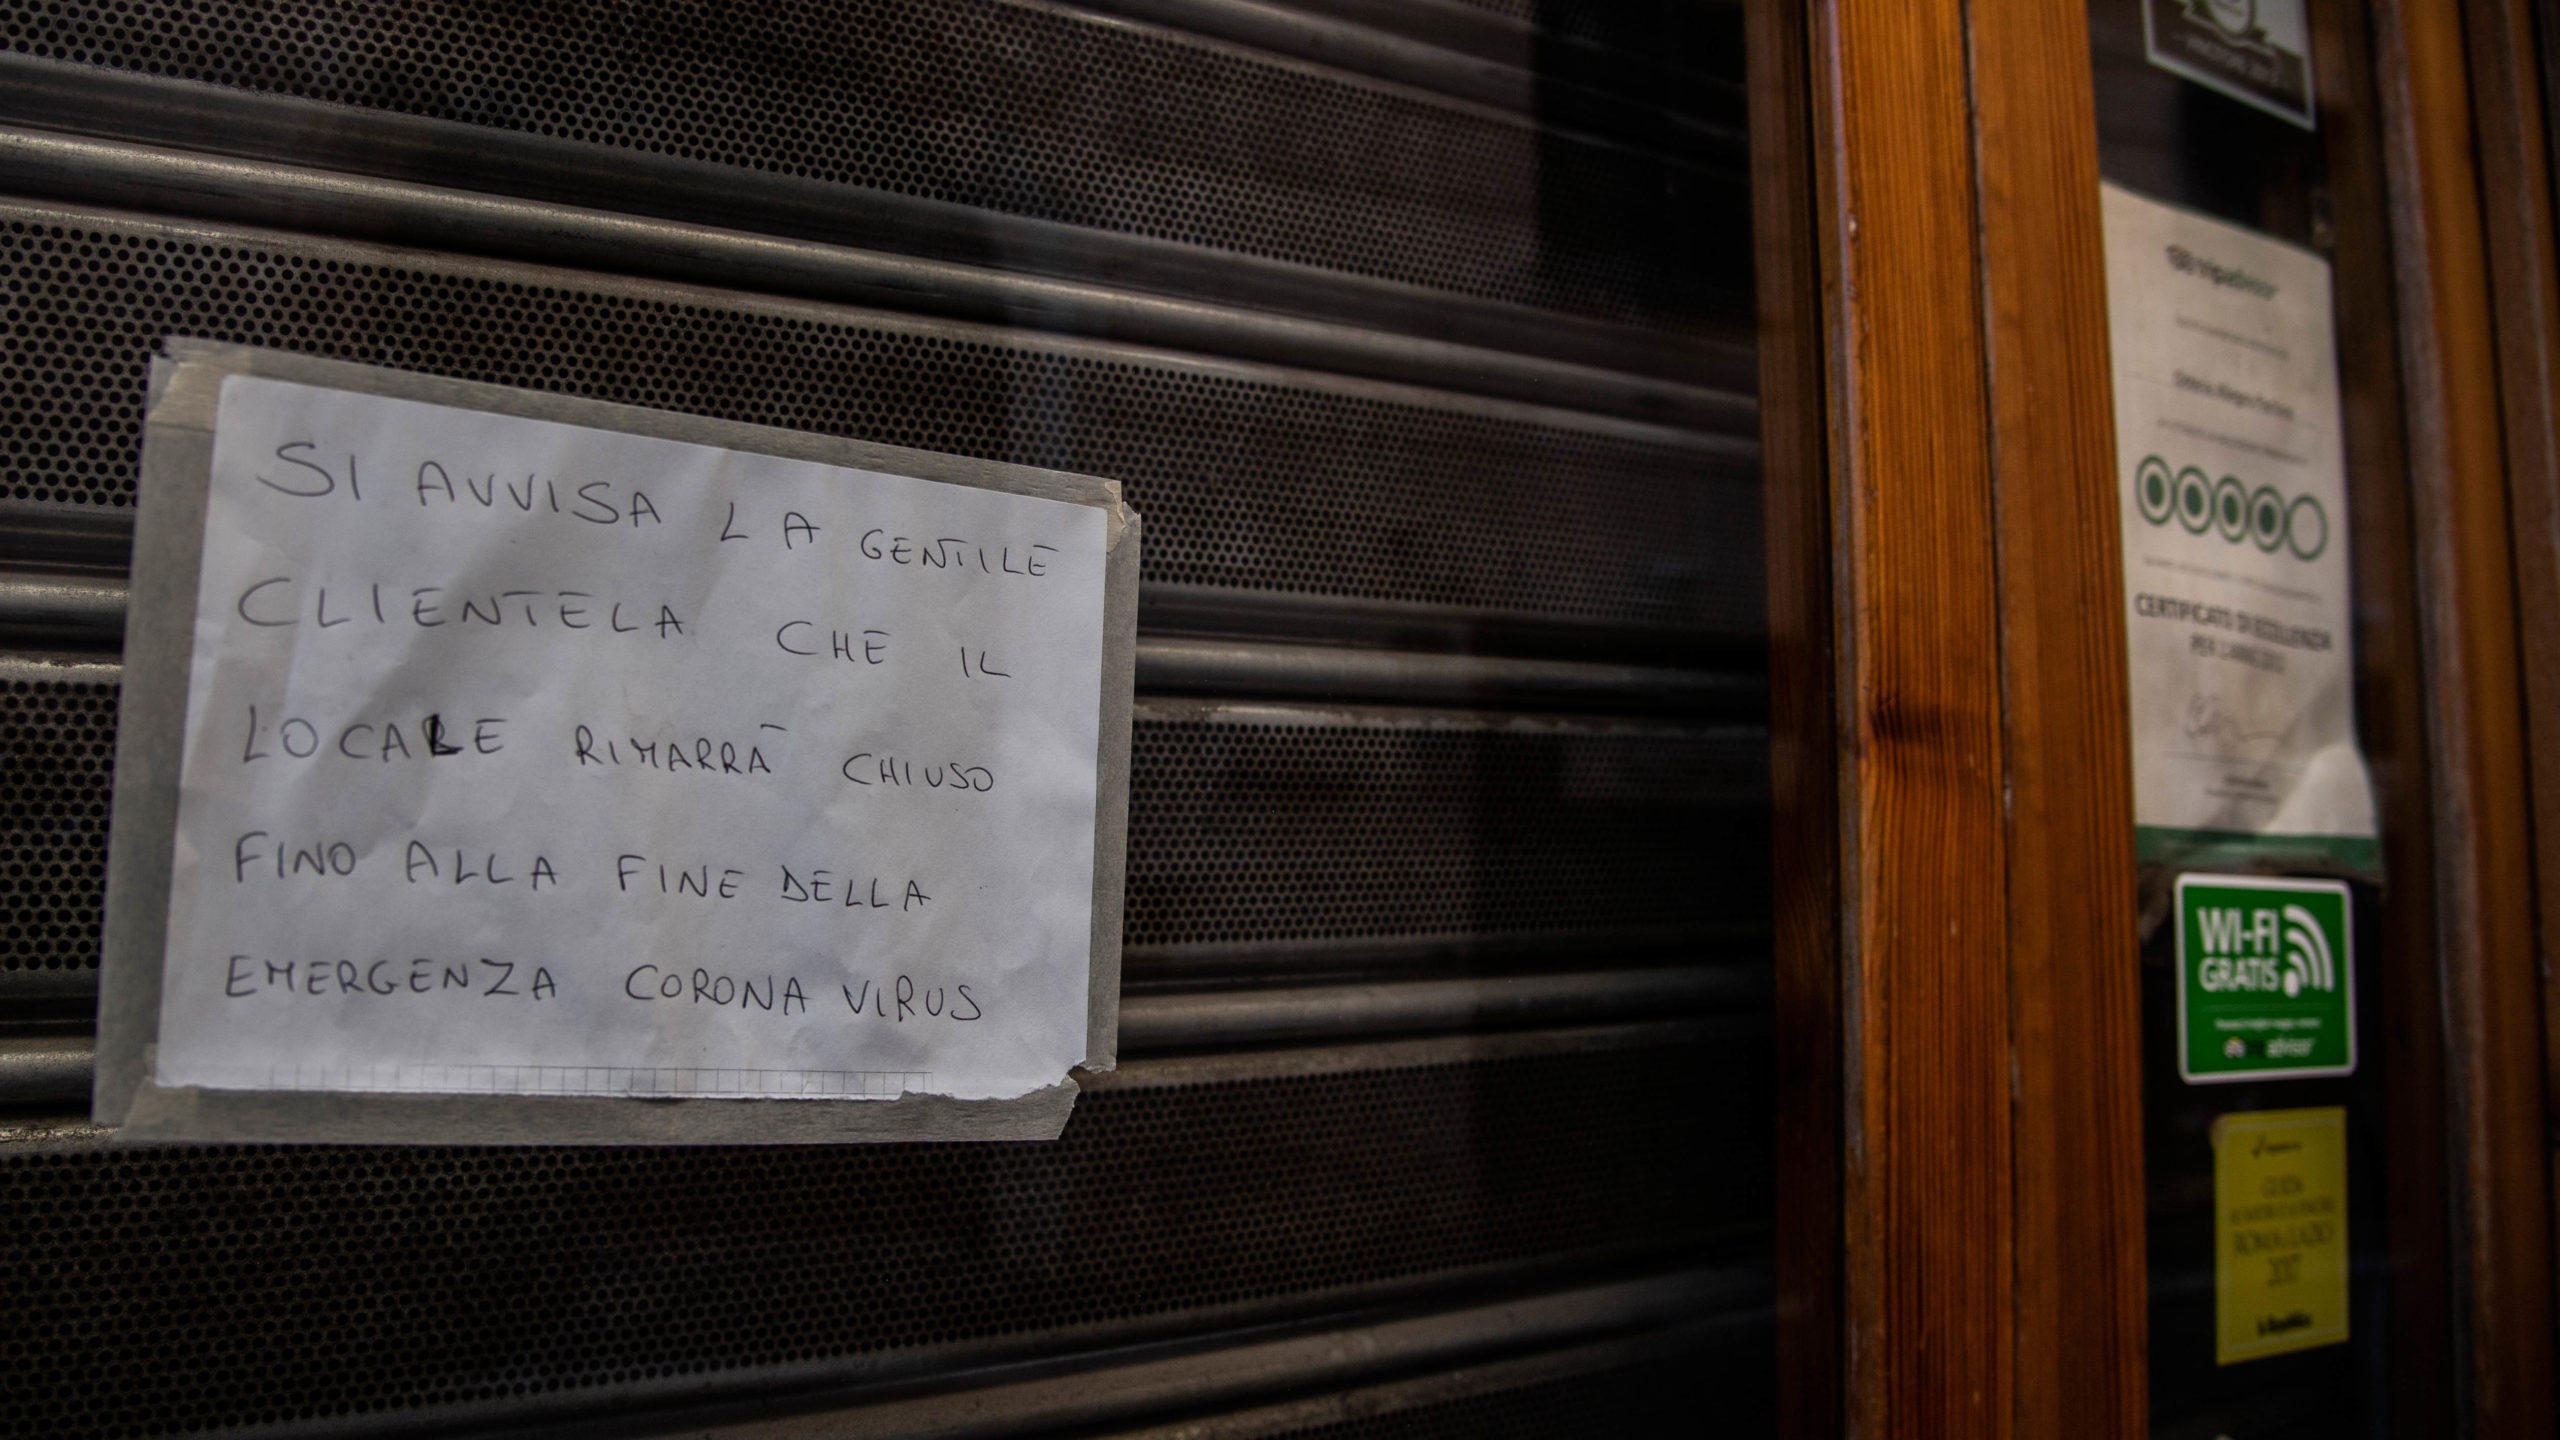 SI AVVISA LA GENTILE
CLIENTELA CHE IL
LOCALE RIMARRÀ CHIUSO
FINO ALLA FINE DELLA
EMERGENZA CORONA VIRUS
tripadvisor
CERTIFICATO DI ECCELLENZA
WI-FI
GRATIS
GUIDA
ROMA e LAZIO
2017
la Repubblica